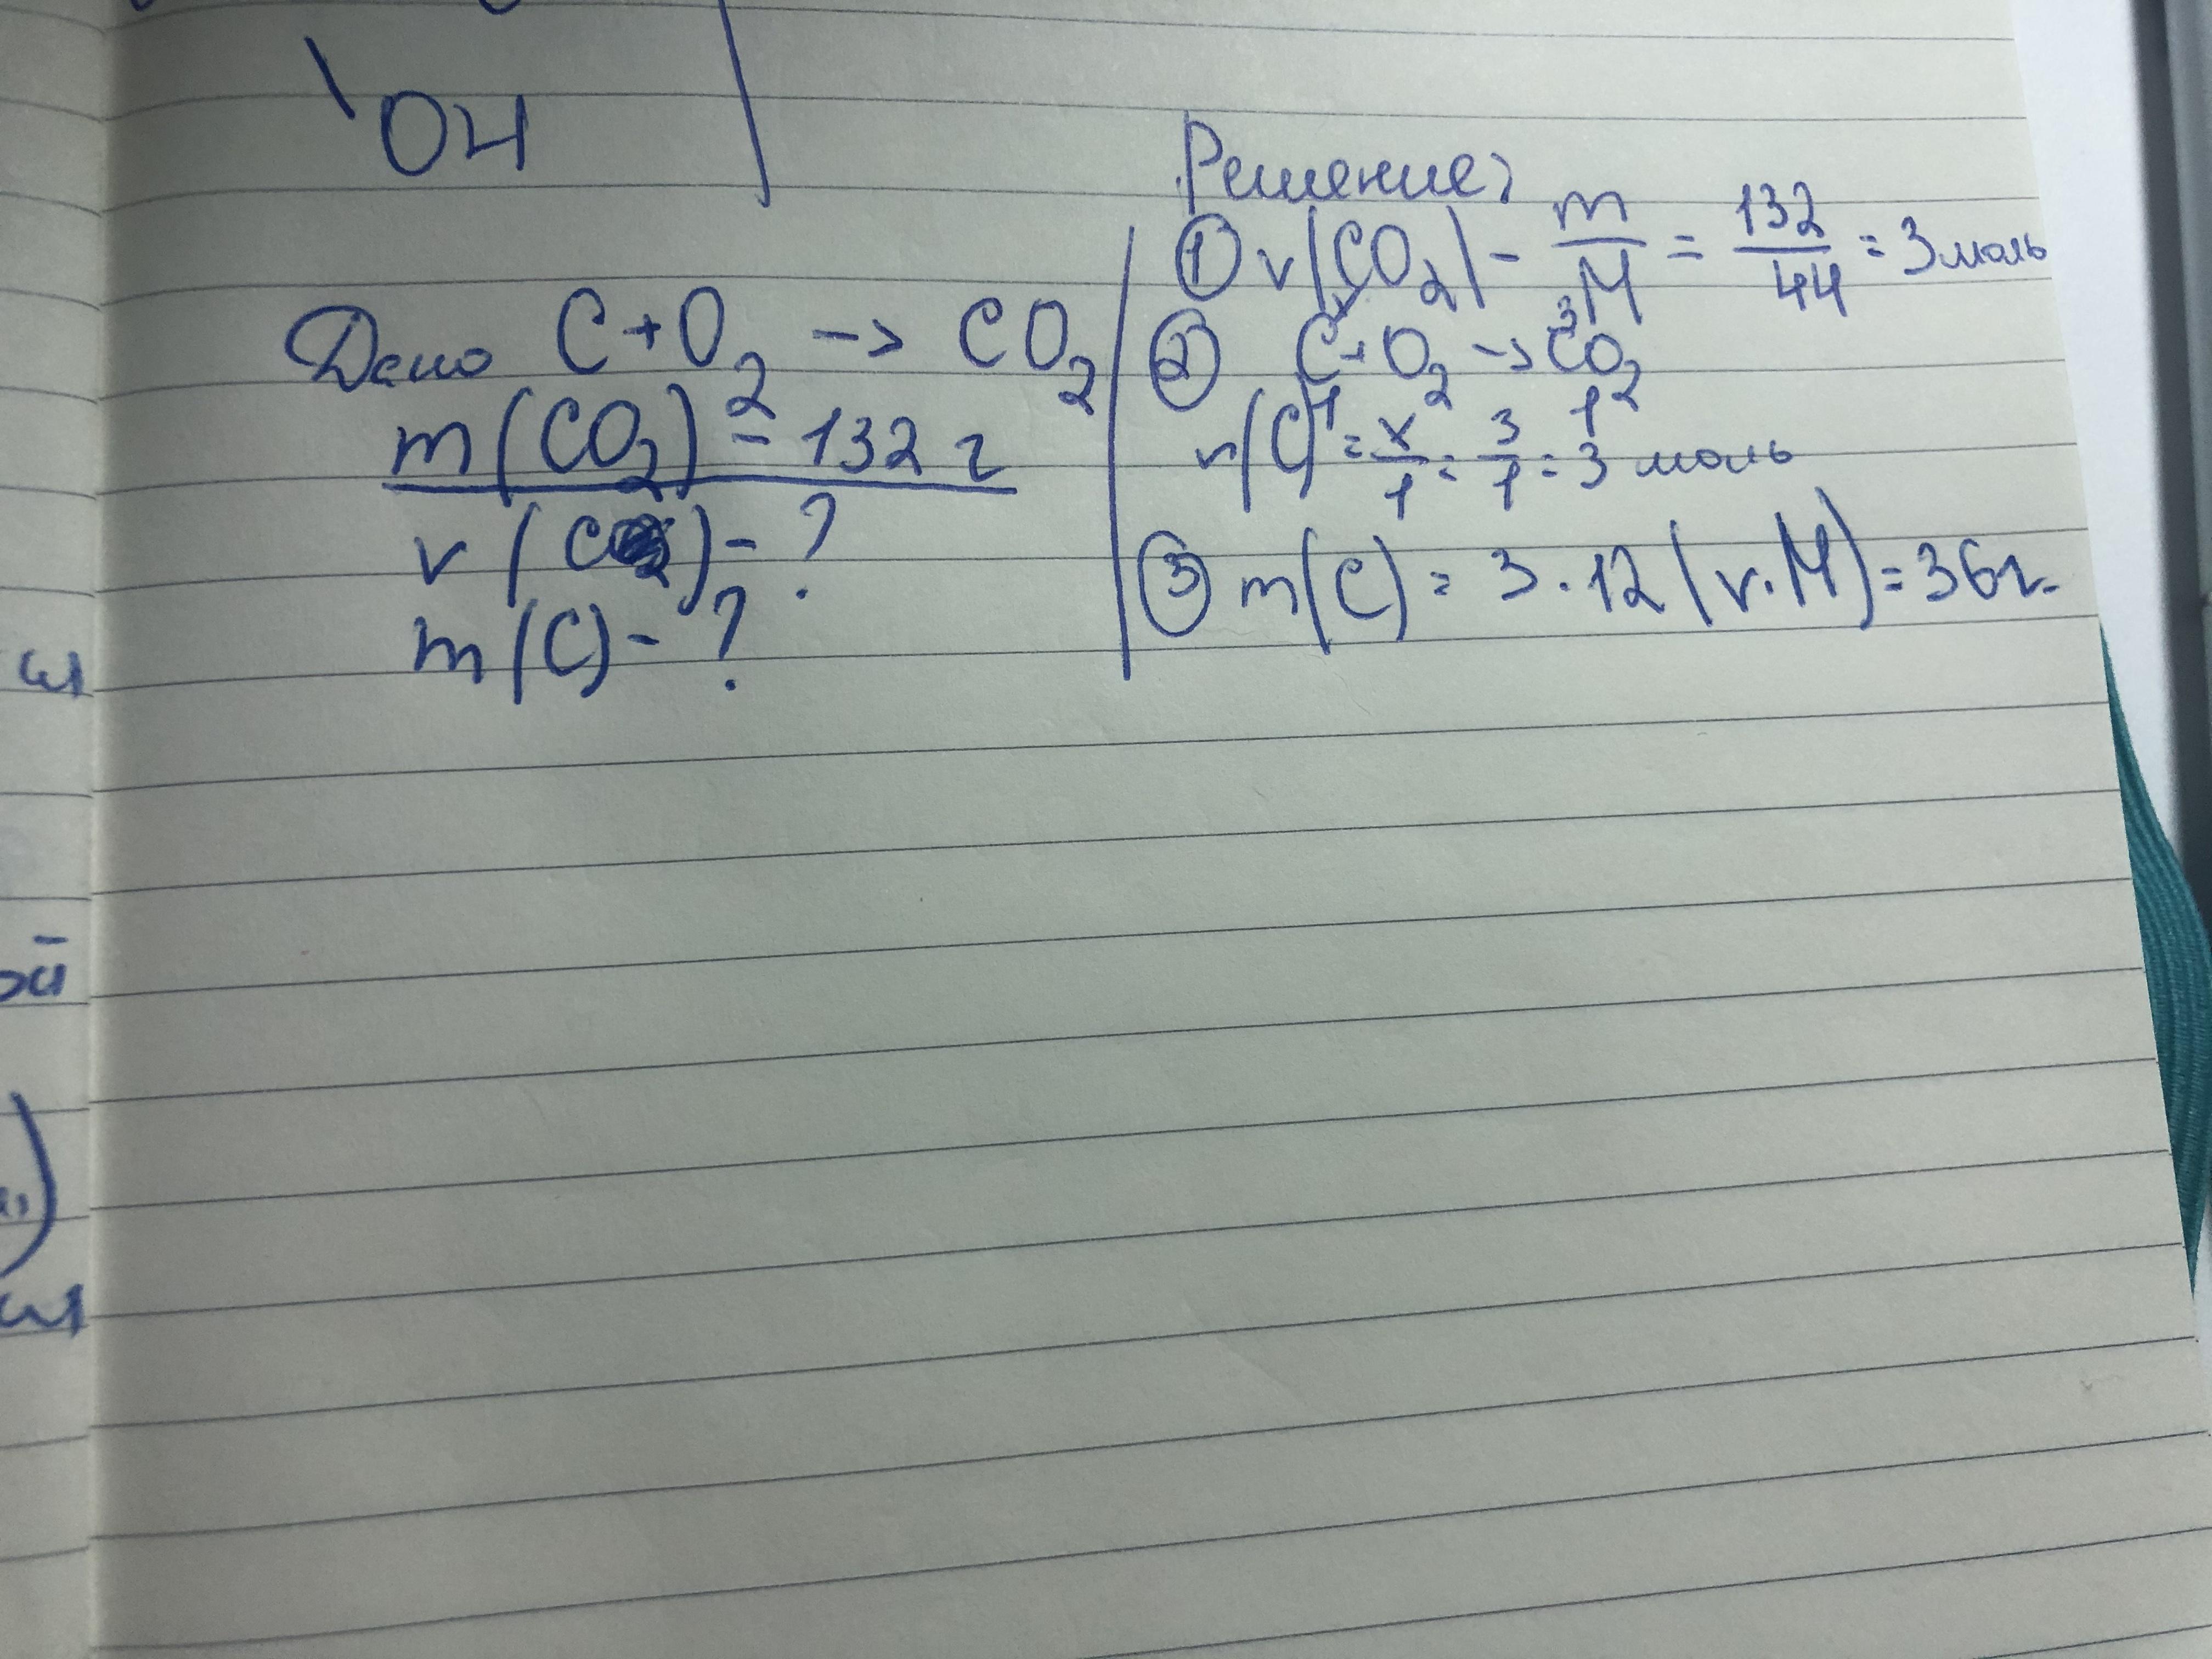 OH
Дано C + O2 -> CO2
m(CO2) = 132 г
v(C) - ?
m(C) - ?
Решение:
① v(CO2) - m/M = 132/44 = 3 моль
x 3
② C + O2 -> CO2
1 1
v(C) = x/1 = 3/1 = 3 моль
③ m(C) = 3 · 12 (v · M) = 36 г.
ы
ой
)
ы